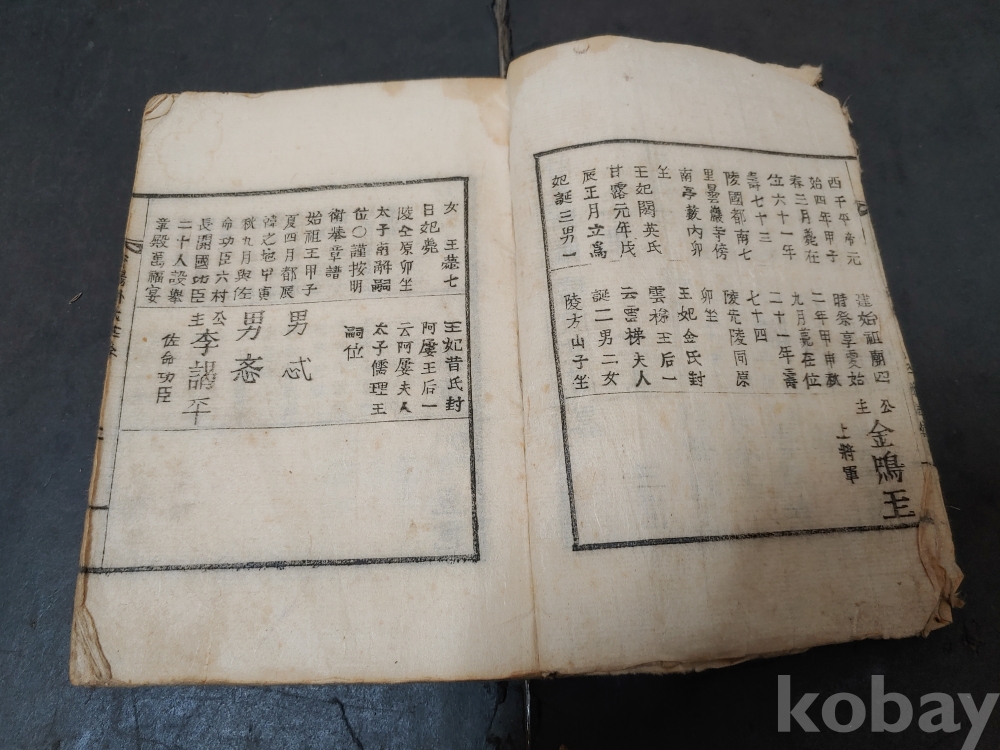 西千平帝元
始四年甲子
春三月薨在
位六十一年
壽七十三
陵國都南七
里曇巖寺傍
南亭藪內卯
坐
王妃閼英氏
甘露元年戊
辰正月立爲
妃誕三男一
建始祖廟四
時祭享爱始
二年甲申秋
九月薨在位
二十一年壽
七十四
陵虎陵同原
卯坐
王妃金氏封
雲梯王后一
云雲梯夫人
誕二男二女
陵方山子坐
公主金鴊王
上將軍
女 王薨七
日妃薨
陵仝原卯坐
太子南解嗣
位〇謹按明
衛㙯章譜
始祖王甲子
夏四月都辰
韓之地甲寅
秋九月與佐
命功臣六村
長開國功臣
二十人設擧
章殿萬福宴
王妃昔氏封
阿婁王后一
云阿婁夫人
太子儒理王
嗣位
男忒
男忞
公主李謁平
佐命功臣
kobay